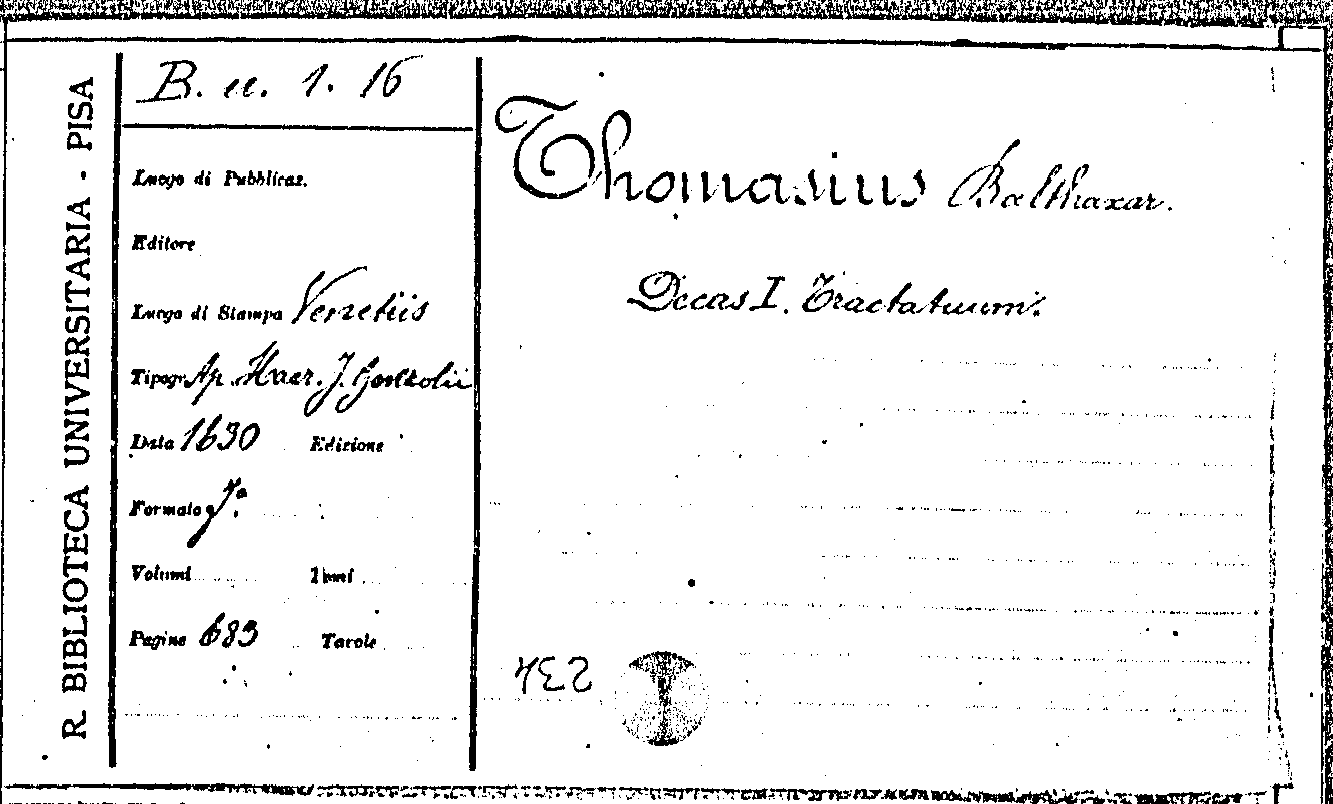 R. BIBLIOTECA UNIVERSITARIA - PISA
B. u. 1. 16
Luogo di Pubblicaz.
Editore
Luogo di Stampa Venetiis
Tipogr. Ap. Haer. J.
Data 1630 Edizione
Formato
Volumi Tomi
Pagine 683 Tavole
Thomasius Balthaxar.
Decas I. Tractatuum.